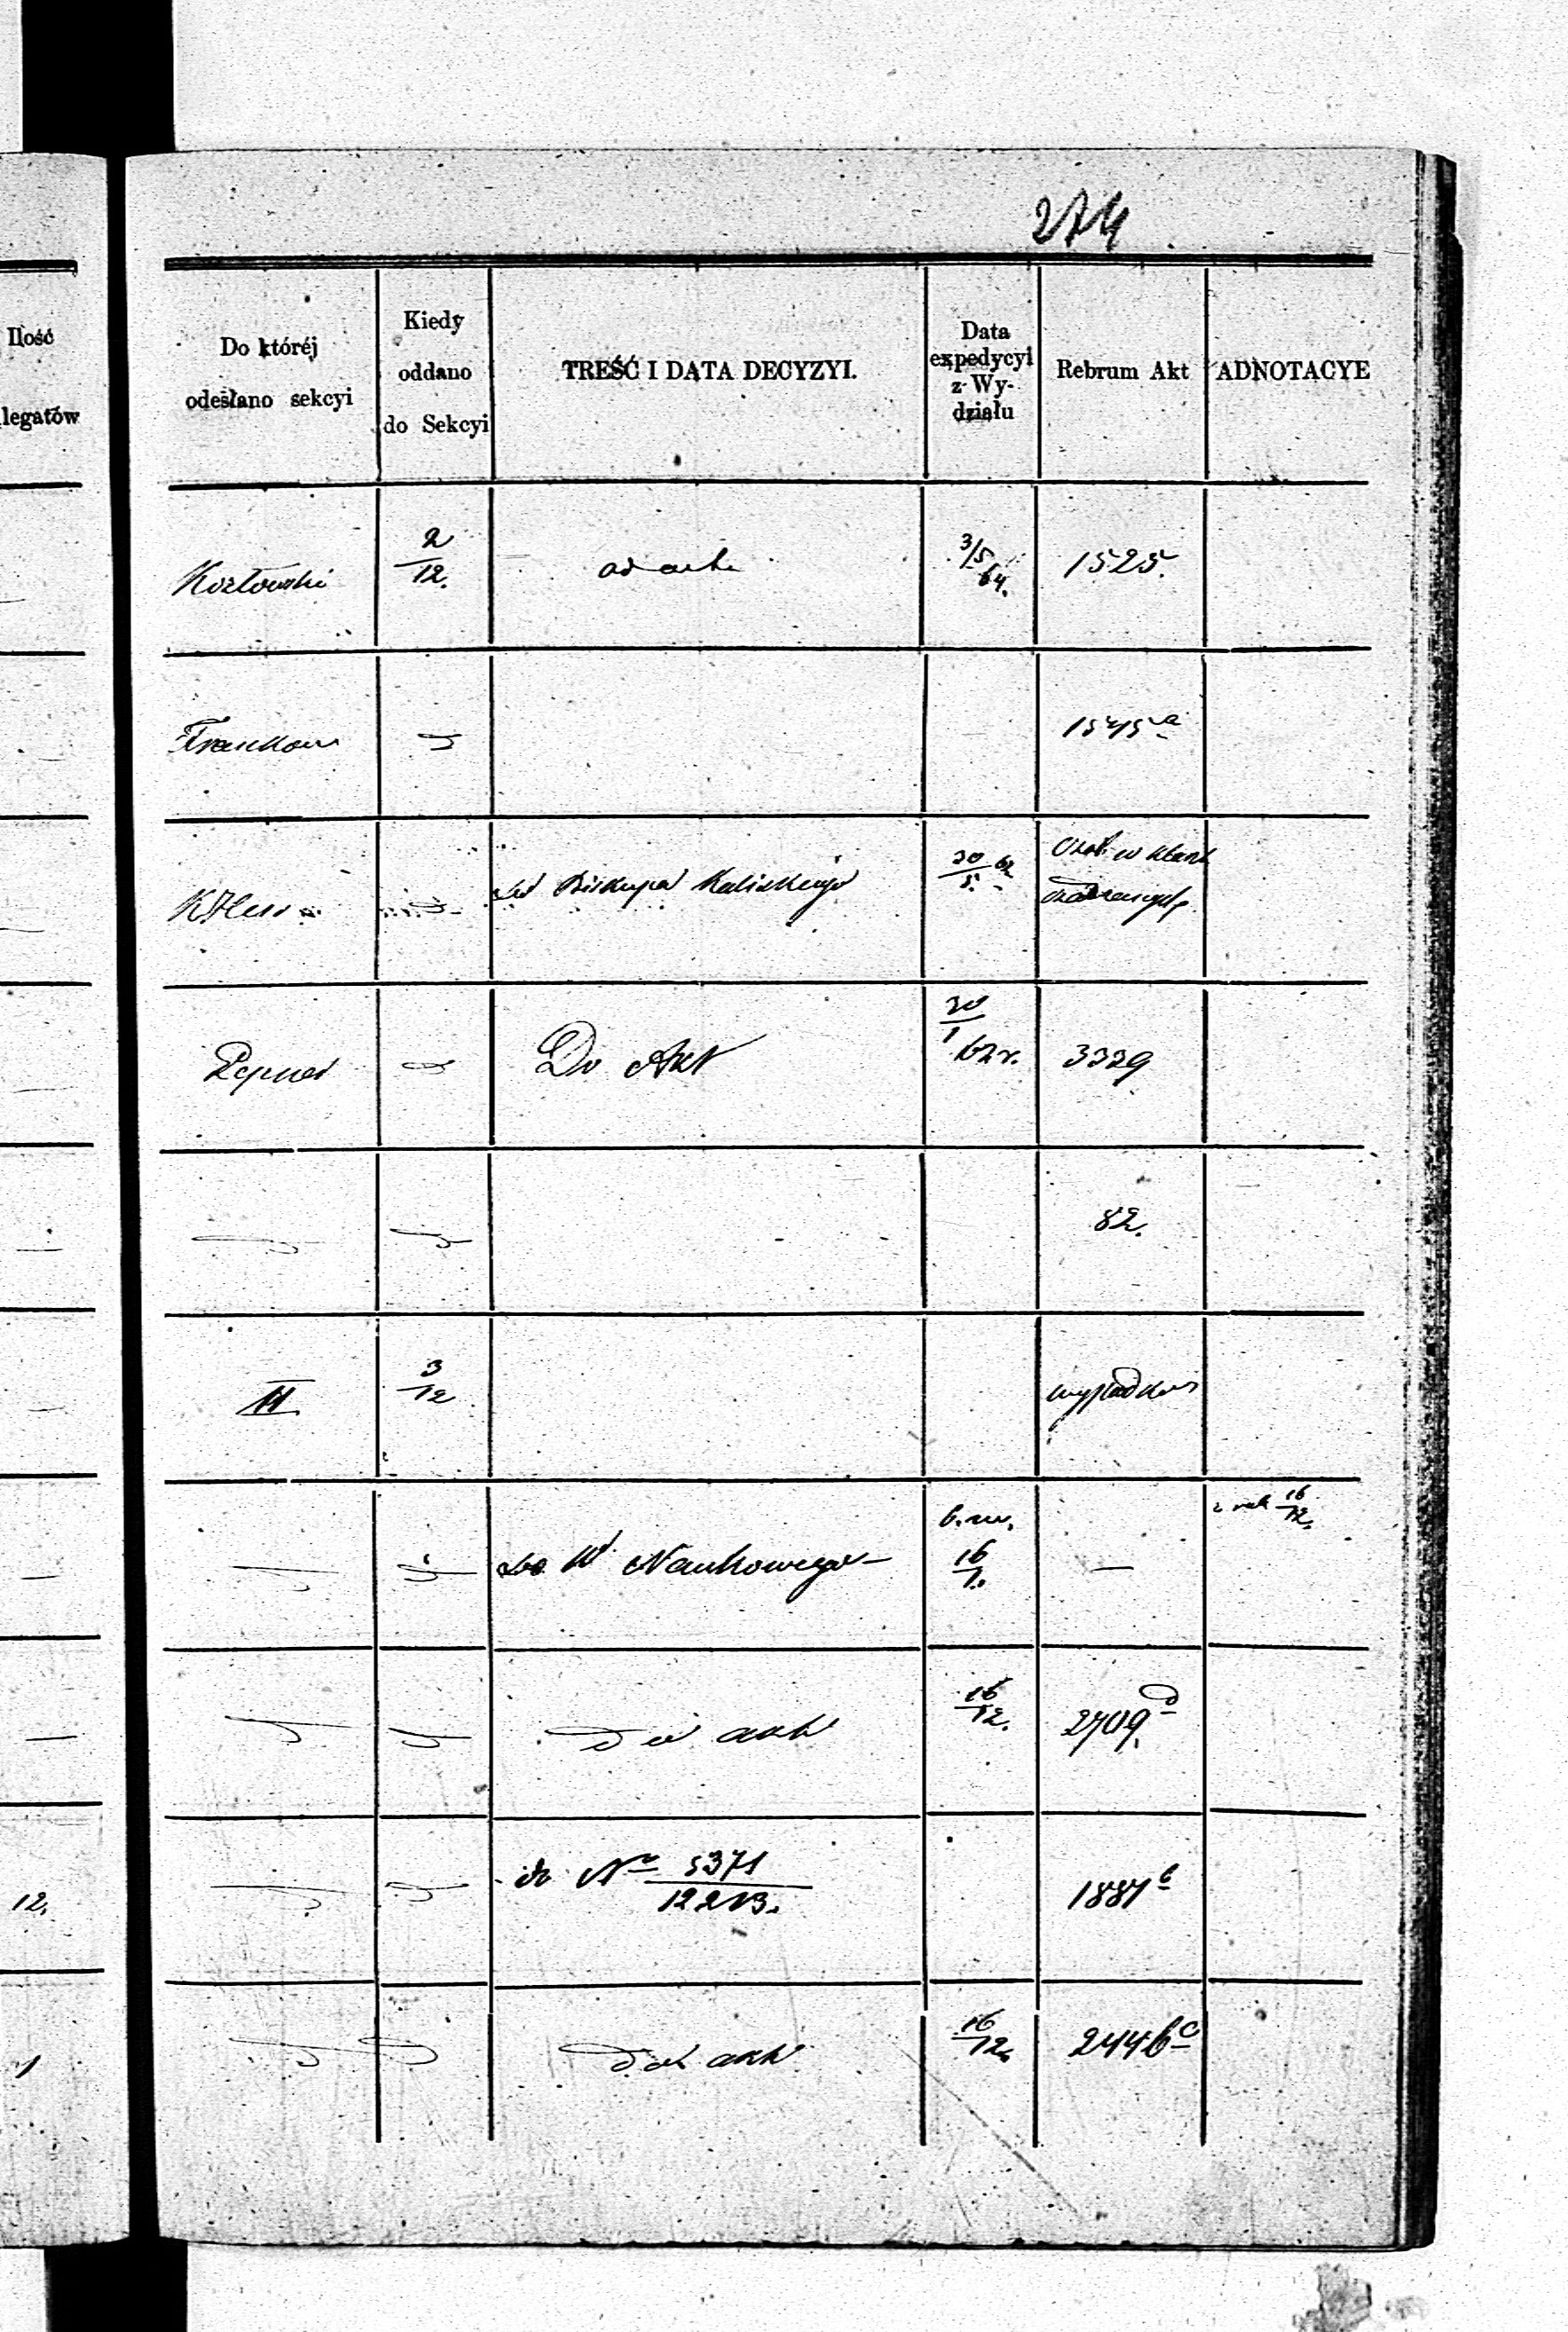 274
Ilość
legatów
Do któréj
odesłano sekcyi
Kiedy
oddano
do Sekcyi
TREŚĆ I DATA DECYZYI.
Data
expedycyi
z Wy-
działu
Rebrum Akt
ADNOTACYE
Kozłowski 2/12. ad acta 3/5 64. 1525.
1545 a
do Biskupa Kaliskiego 30/5 62
Do Akt 30/1 62 r. 3339
82.
II 3/12
do W Naukowego 16/1. — 16/12.
do akt 16/12. 2709 d
12. do No 5371/12213. 1887 b
1 do akt 16/12. 2446 c